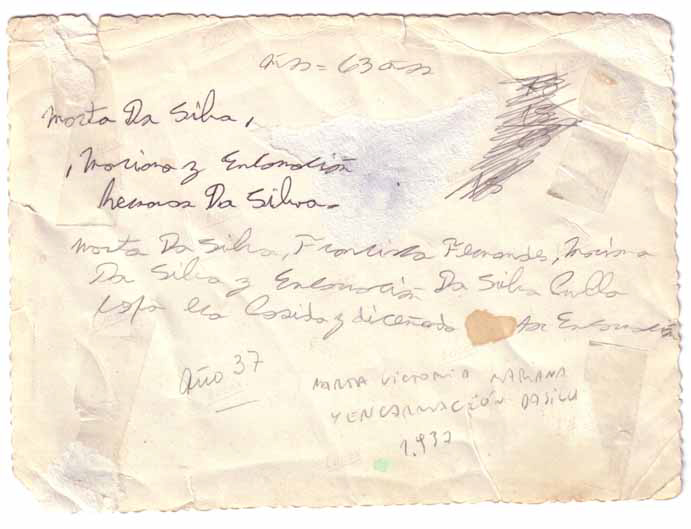 años = 63 años
Marta Da Silva,
, Mariana y Encarnación
Da Silva.
Marta Da Silva, Francisca Fernandes, Mariana
Da Silva y Encarnación Da Silva
ropa era Cosida y diceñada por Encarnación
Año 37
MARTA VICTORIA MARIANA
Y ENCARNACIÓN DASILV
1.937